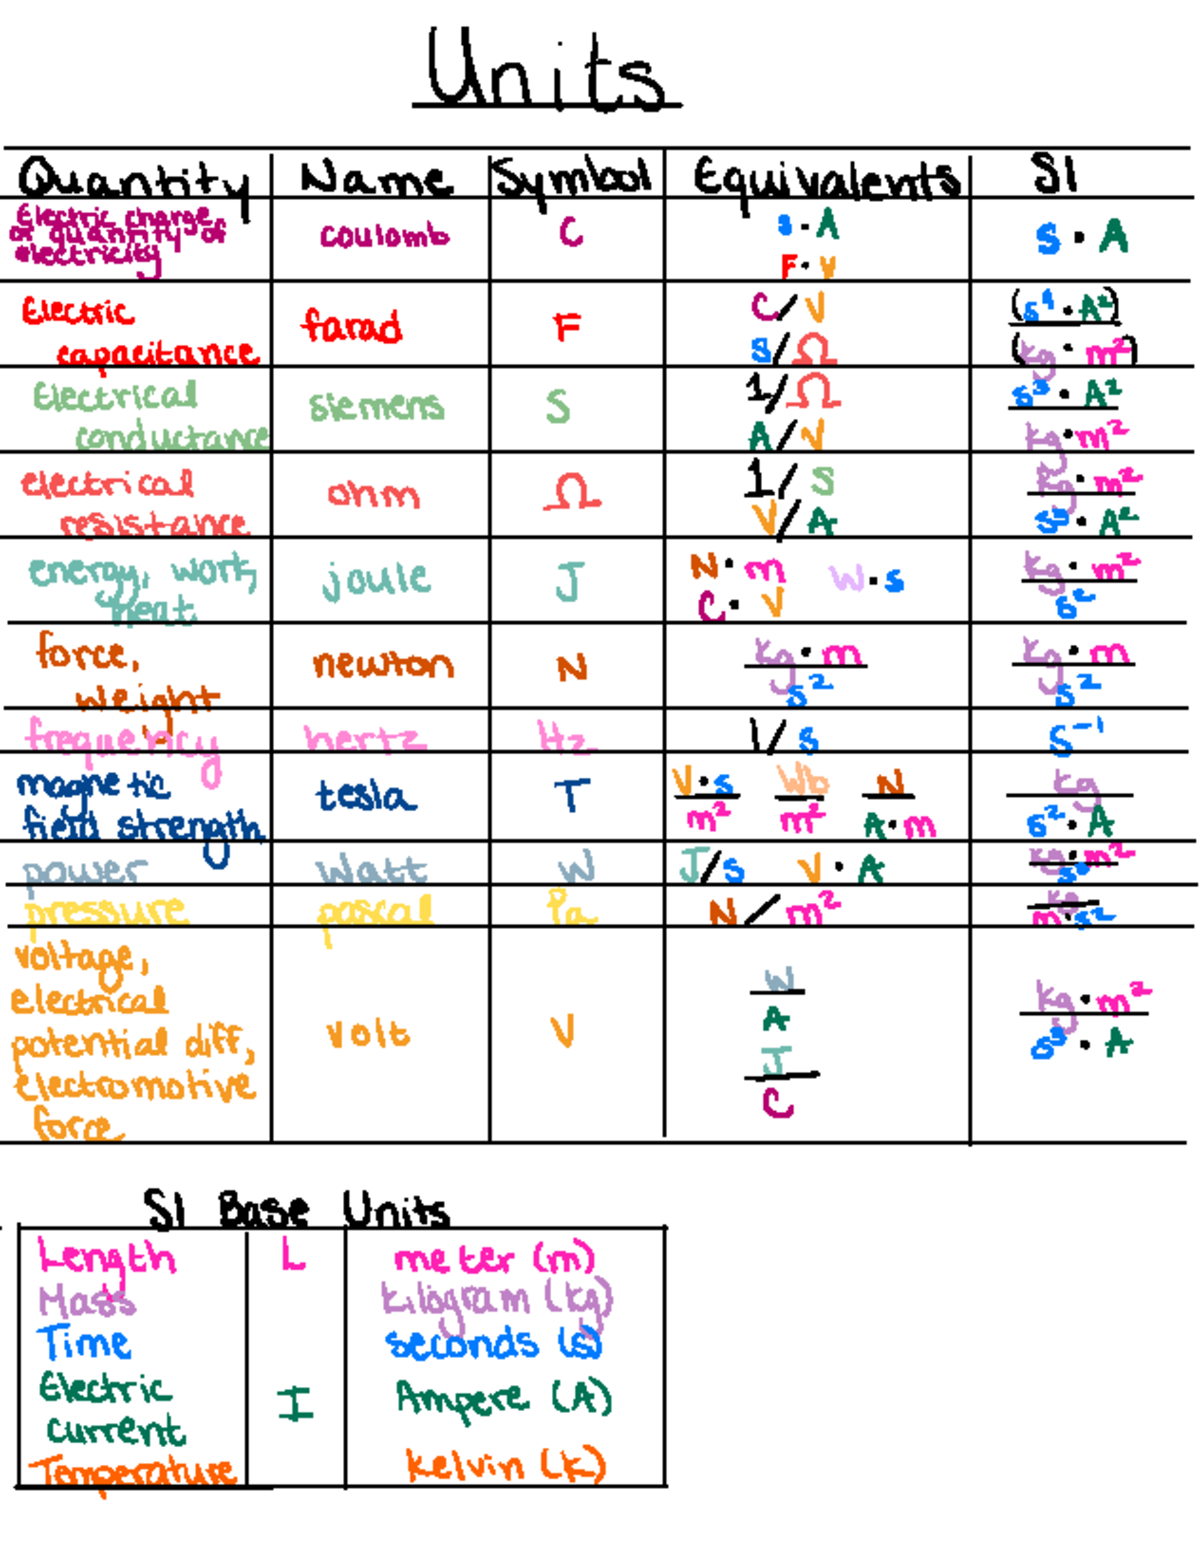 Units
Quantity Name Symbol Equivalents SI
Electric charge
or quantity of
electricity
coulomb C s · A
F · V
s · A
Electric
capacitance
farad F C/V
s/Ω
(s⁴ · A²)
(kg · m²)
Electrical
conductance
siemens S 1/Ω
A/V
s³ · A²
kg · m²
electrical
resistance
ohm Ω 1/S
V/A
kg · m²
s³ · A²
energy, work,
heat
joule J N · m W · s
C · V
kg · m²
s²
force,
weight
newton N kg · m
s²
kg · m
s²
frequency hertz Hz 1/s s⁻¹
magnetic
field strength
tesla T V · s Wb N
m² m² A · m
kg
s² · A
power Watt W J/s V · A kg · m²
s³
pressure pascal Pa N/m² kg
m · s²
voltage,
electrical
potential diff,
electromotive
force
volt V W
A
J
C
kg · m²
s³ · A
SI Base Units
Length L meter (m)
Mass kilogram (kg)
Time seconds (s)
Electric
current
I Ampere (A)
Temperature kelvin (k)